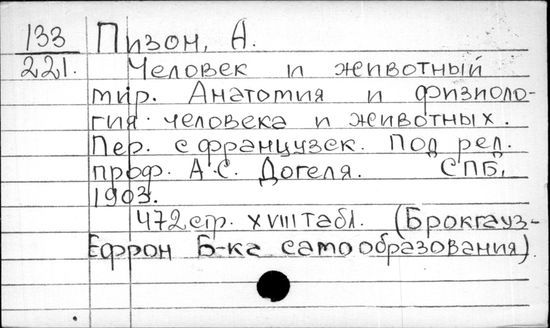 133 Пизон, А.
221. Человек и животный
мир. Анатомия и физиоло-
гия человека и животных.
Пер. с французск. Под ред.
проф. А.С. Догеля. СПБ,
1903.
472 стр. XVIII табл. (Брокгауз-
Ефрон Б-ка самообразования).